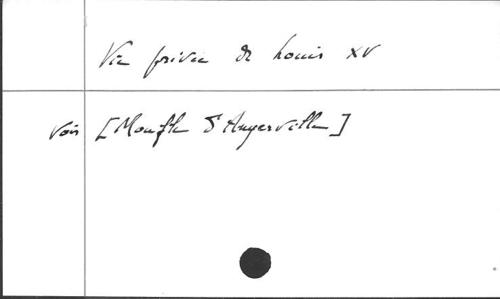 Vie privée de Louis XV
voir [Moufle d'Angerville]